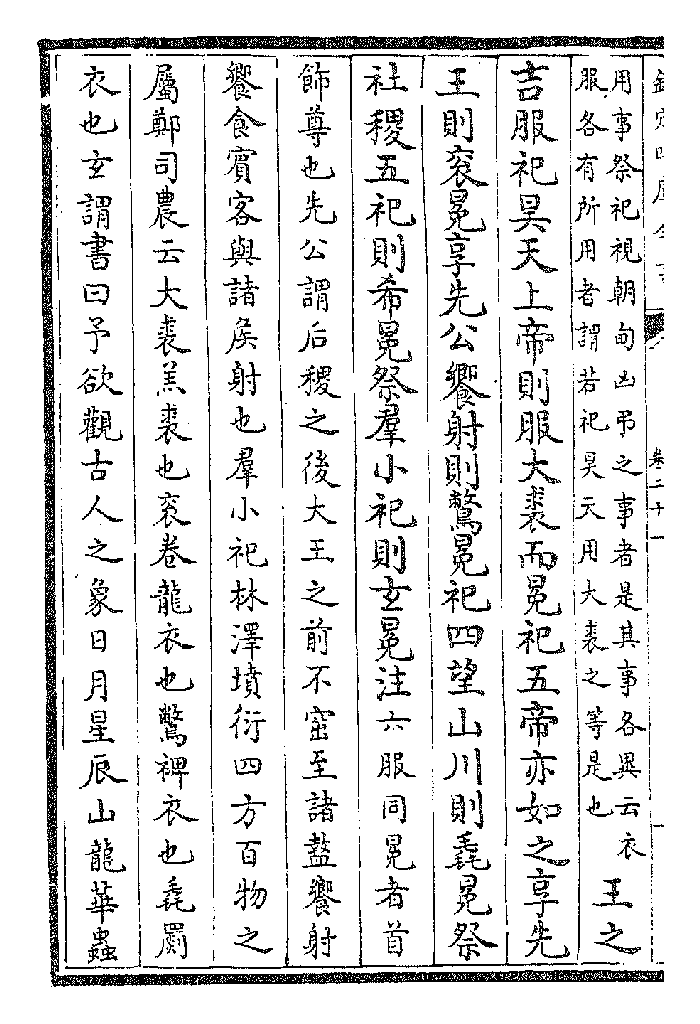 卷二十一
用事祭祀視朝甸凶弔之事者是其事各異云衣
服各有所用者謂若祀昊天用大裘之等是也
王之
吉服祀昊天上帝則服大裘而冕祀五帝亦如之享先
王則衮冕享先公饗射則鷩冕祀四望山川則毳冕祭
社稷五祀則希冕祭羣小祀則玄冕注六服同冕者首
飾尊也先公謂后稷之後大王之前不窋至諸盩饗射
饗食賓客與諸侯射也羣小祀林澤墳衍四方百物之
屬鄭司農云大裘羔裘也衮卷龍衣也鷩裨衣也毳罽
衣也玄謂書曰予欲觀古人之象日月星辰山龍華蟲